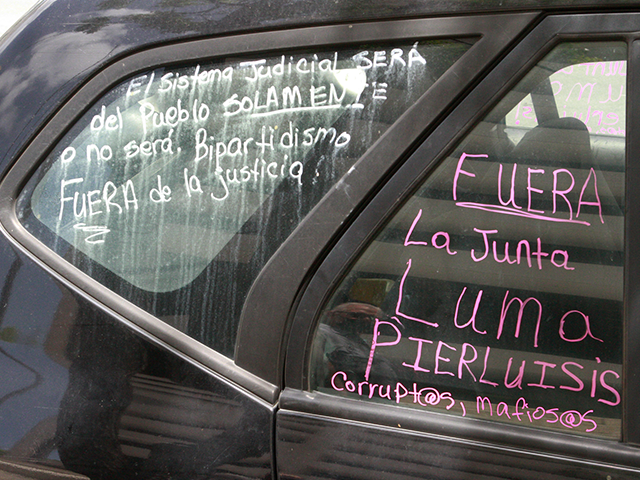 El Sistema Judicial SERÁ
del Pueblo SOLAMENTE
o no será. Bipartidismo
FUERA de la justicia!
FUERA
La Junta
Luma
PIERLUISIS
Corrupt@s, mafios@s